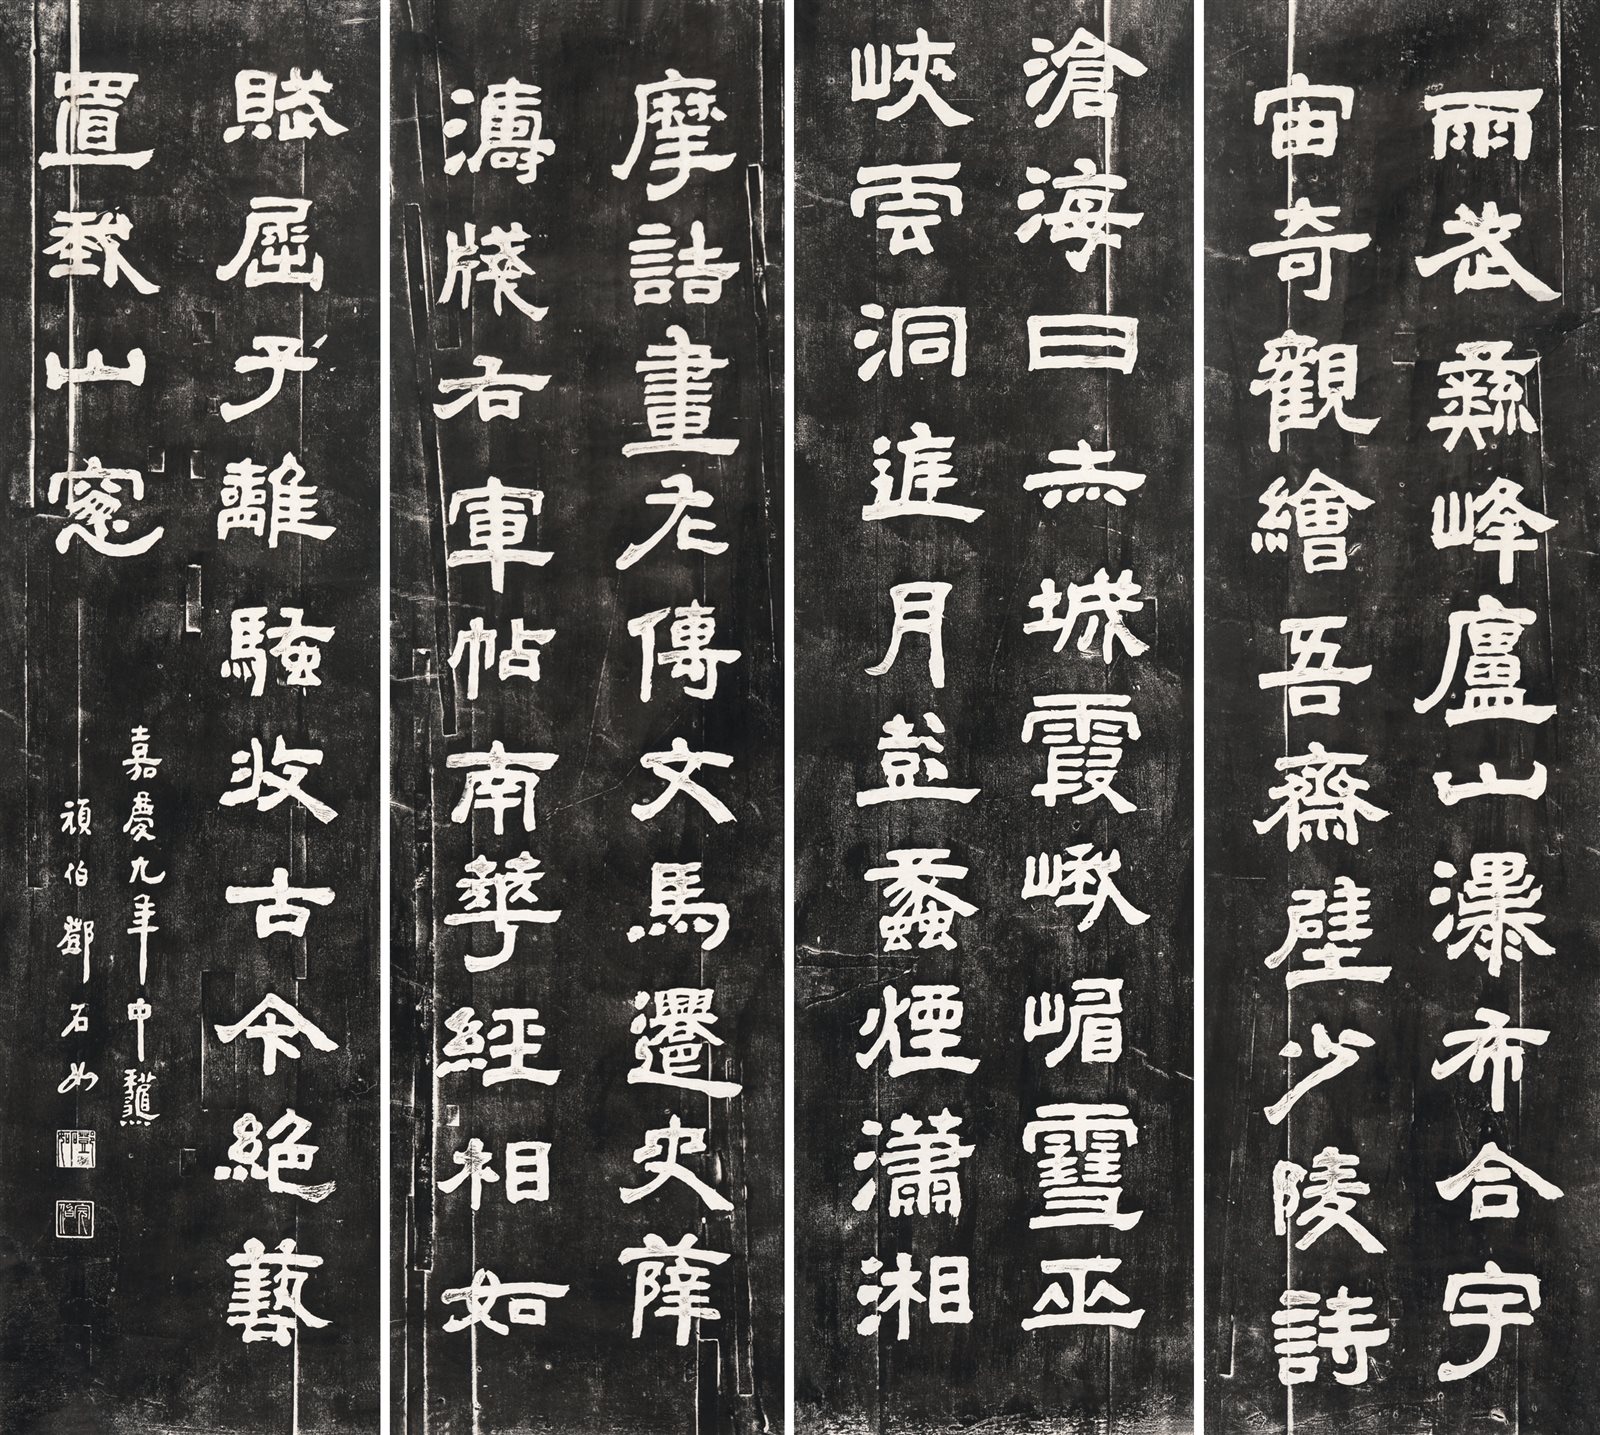 雨武彝峰廬山瀑布合宇
宙奇觀繪吾齋壁少陵詩
滄海日赤城霞峨嵋雪巫
峽雲洞庭月彭蠡煙瀟湘
摩詰畫左傳文馬遷史薛
濤牋右軍帖南華經相如
賦屈子離騷收古今絕藝
置我山窻
嘉慶九年中秋
頑伯鄧石如